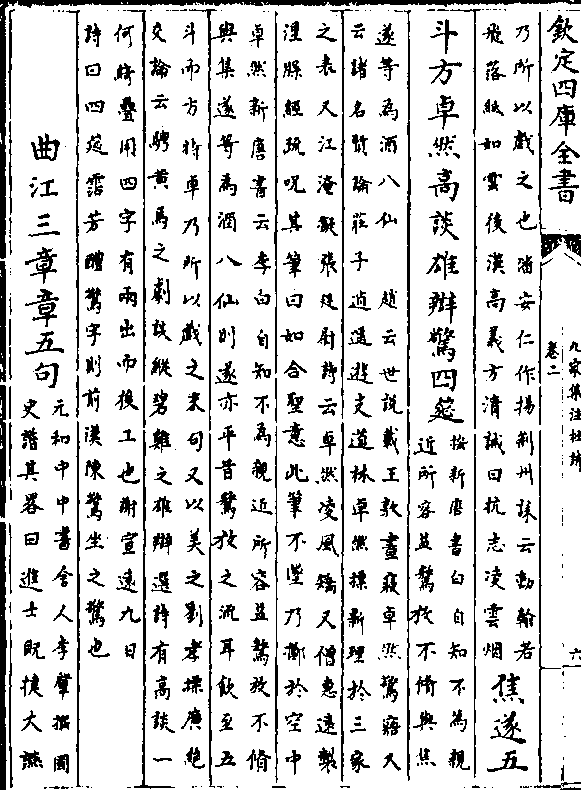 欽定四庫全書
九家集注杜詩
卷二
六
乃所以戲之也潘安仁作揚荆州誄云動翰若
飛落紙如雲後漢高義方清誡曰抗志凌雲烟
焦遂五
斗方卓然高談雄辯驚四筵
按新唐書白自知不為親
近所容益驁放不脩與焦
遂等為酒八仙 趙云世說載王敦晝寢卓然驚寤又
云諸名賢論莊子逍遥遊支道林卓然標新理於三家
之表又江淹擬張廷尉詩云卓然凌風矯又僧惠遠製
湼槃經疏呪其筆曰如合聖意此筆不墮乃擲於空中
卓然新唐書云李白自知不為親近所容益驁放不脩
與焦遂等為酒八仙則遂亦平昔驁放之流耳飲至五
斗而方特卓乃所以戲之末句又以美之劉孝標廣絶
交論云騁黄馬之劇談縱碧雞之雄辯選詩有高談一
何綺疊用四字有兩出而後工也謝宣遠九日
詩曰四筵霑芳醴驚字則前漢陳驚坐之驚也
曲江三章章五句
元和中中書舍人李肇撰國
史譜其畧曰進士既捷大讌